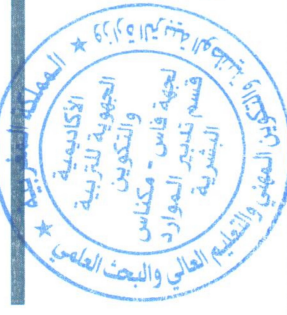 المملكة المغربية
وزارة التربية الوطنية والتكوين المهني والتعليم العالي والبحث العلمي
الأكاديمية
الجهوية للتربية
والتكوين
لجهة فاس - مكناس
قسم تدبير الموارد
البشرية